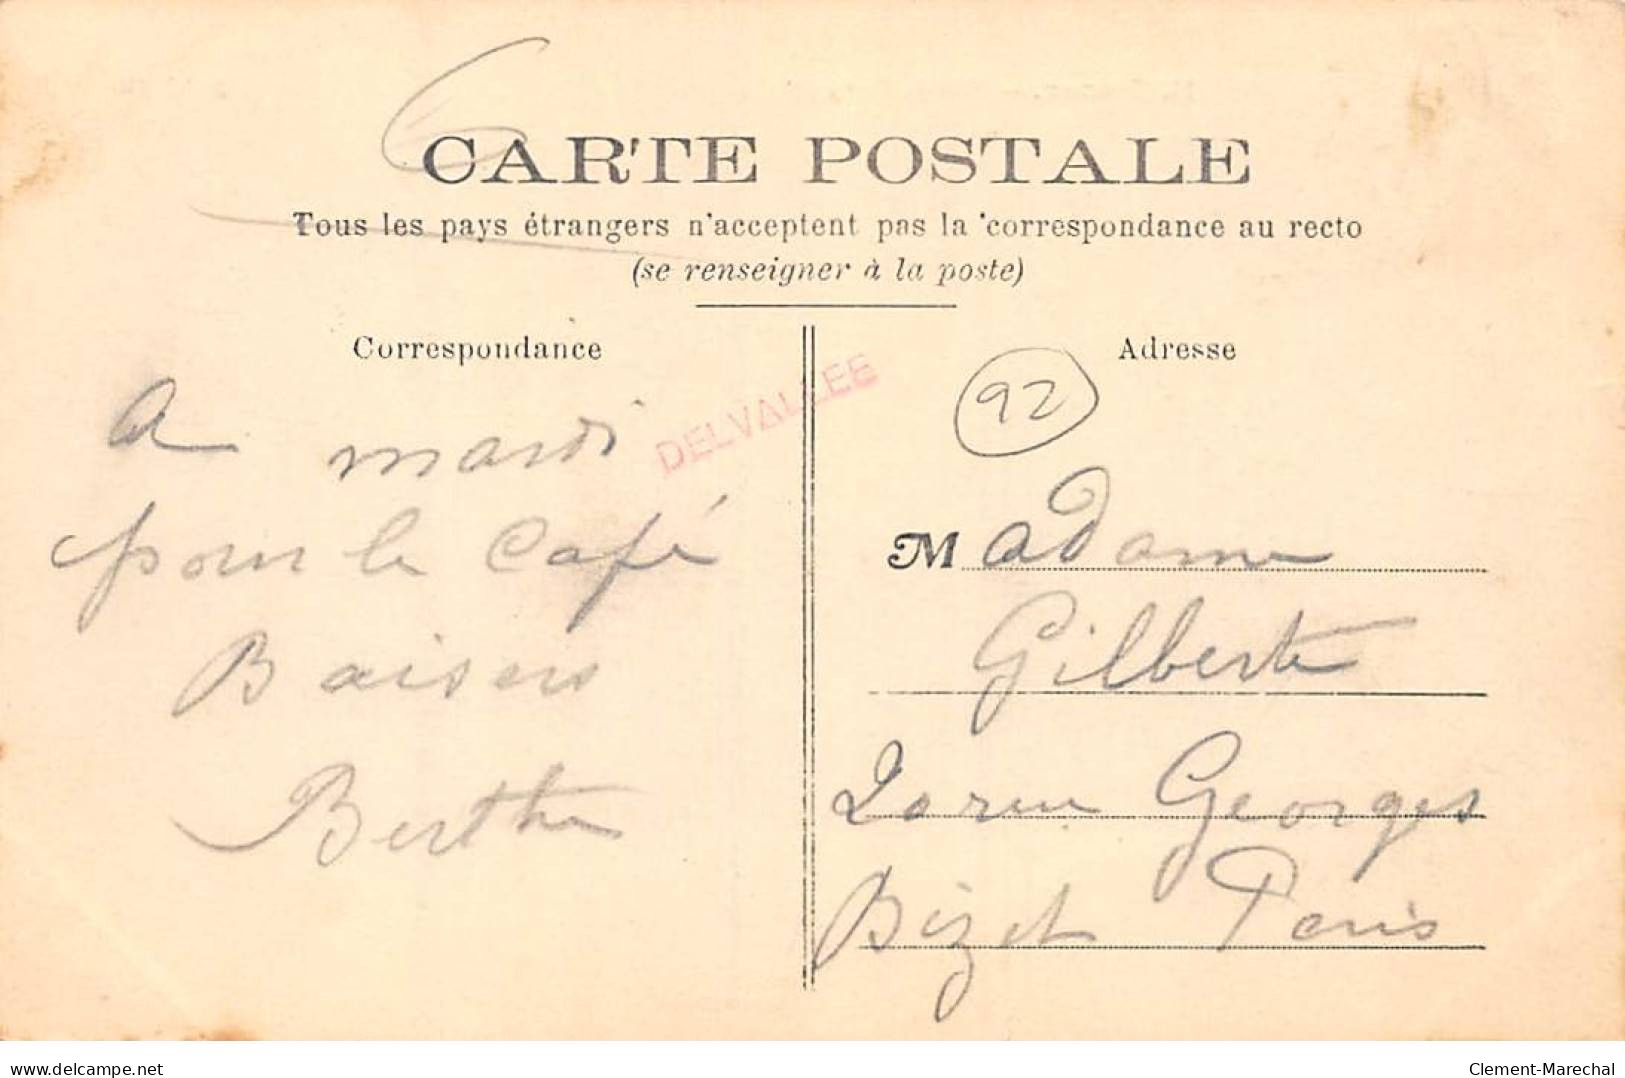 CARTE POSTALE
Tous les pays étrangers n'acceptent pas la correspondance au recto
(se renseigner à la poste)
Correspondance
Adresse
92
DELVALLEE
A mardi
pour le Café
Baisers
Berthe
Madame
Gilberte
rue Georges
Bizet Paris
delcampe.net
Clement-Marechal